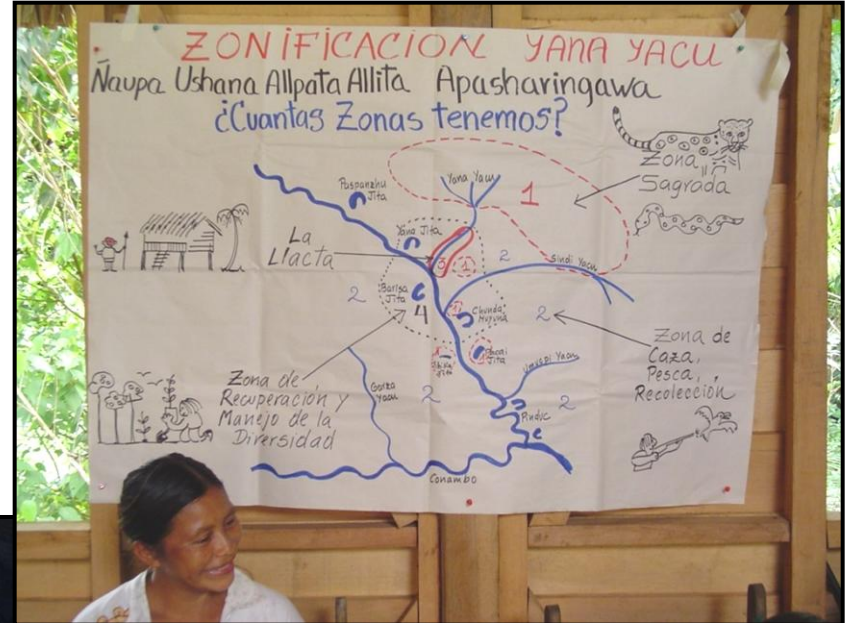 ZONIFICACION YANA YACU
Ñaupa Ushana Allpata Allita Apasharingawa
¿Cuantas Zonas tenemos?
Zona
Sagrada
Puspanzhu
Jita
Yana Yacu
1
Yana Jita
La
Llacta
3
1
2
Sindi Yacu
2
Barisa
Jita
4
1
Chunda
Muyuna
2
Zona de
Caza,
Pesca,
Recolección
Jita
Jita
Zona de
Recuperación y
Manejo de la
Diversidad
Yacu
2
Yacu
2
Conambo